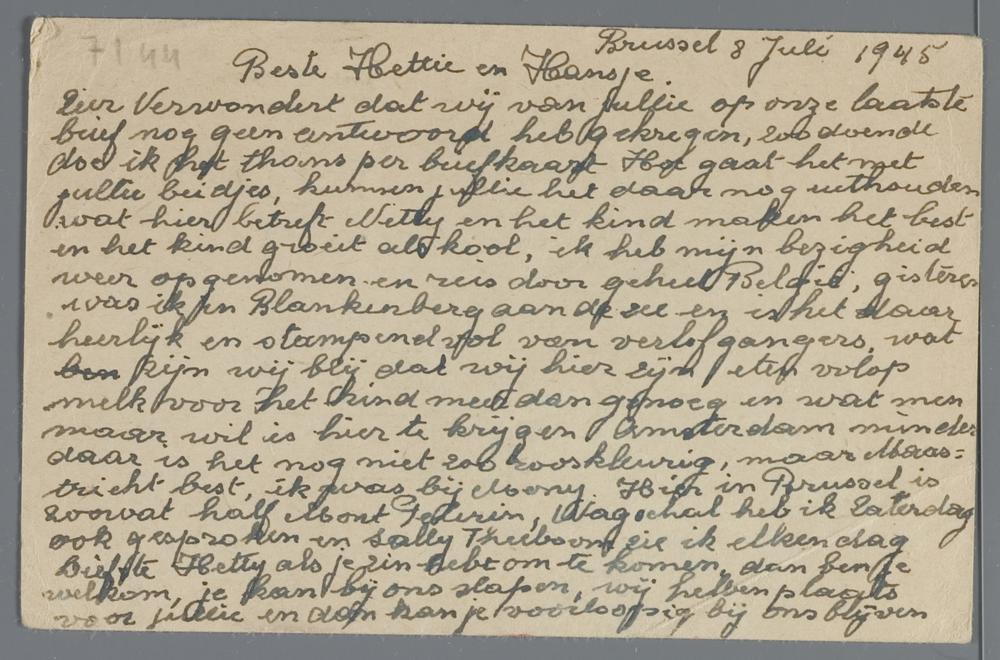 7144
Brussel 8 Juli 1945
Beste Hettie en Hansje.
Zeer Verwondert dat wij van jullie op onze laatste
brief nog geen antwoord heb gekregen, zoodoende
doe ik het thans per briefkaart Hoe gaat het met
jullie beidjes, kunnen jullie het daar nog uithouden
wat hier betreft Netty en het kind maken het best
en het kind groeit als kool, ik heb mijn bezigheid
weer opgenomen en reis door geheel België, gisteren
was ik in Blankenberg aan de zee en is het daar
heerlijk en stampend vol van verlofgangers, wat
ben zijn wij blij dat wij hier zijn, eten volop
melk voor het kind meer dan genoeg en wat men
maar wil is hier te krijgen Amsterdam minder
daar is het nog niet zoo rooskleurig, maar Maas=
tricht best, ik was bij Mony Hier in Brussel is
zoowat half Mont Pelerin, Wagschal heb ik Zaterdag
ook gesproken en Sally Theeboom zie ik elken dag
Liefste Hetty als je zin hebt om te komen, dan ben je
welkom, je kan bij ons slapen, wij hebben plaats
voor jullie en dan kan je voorloopig bij ons blijven